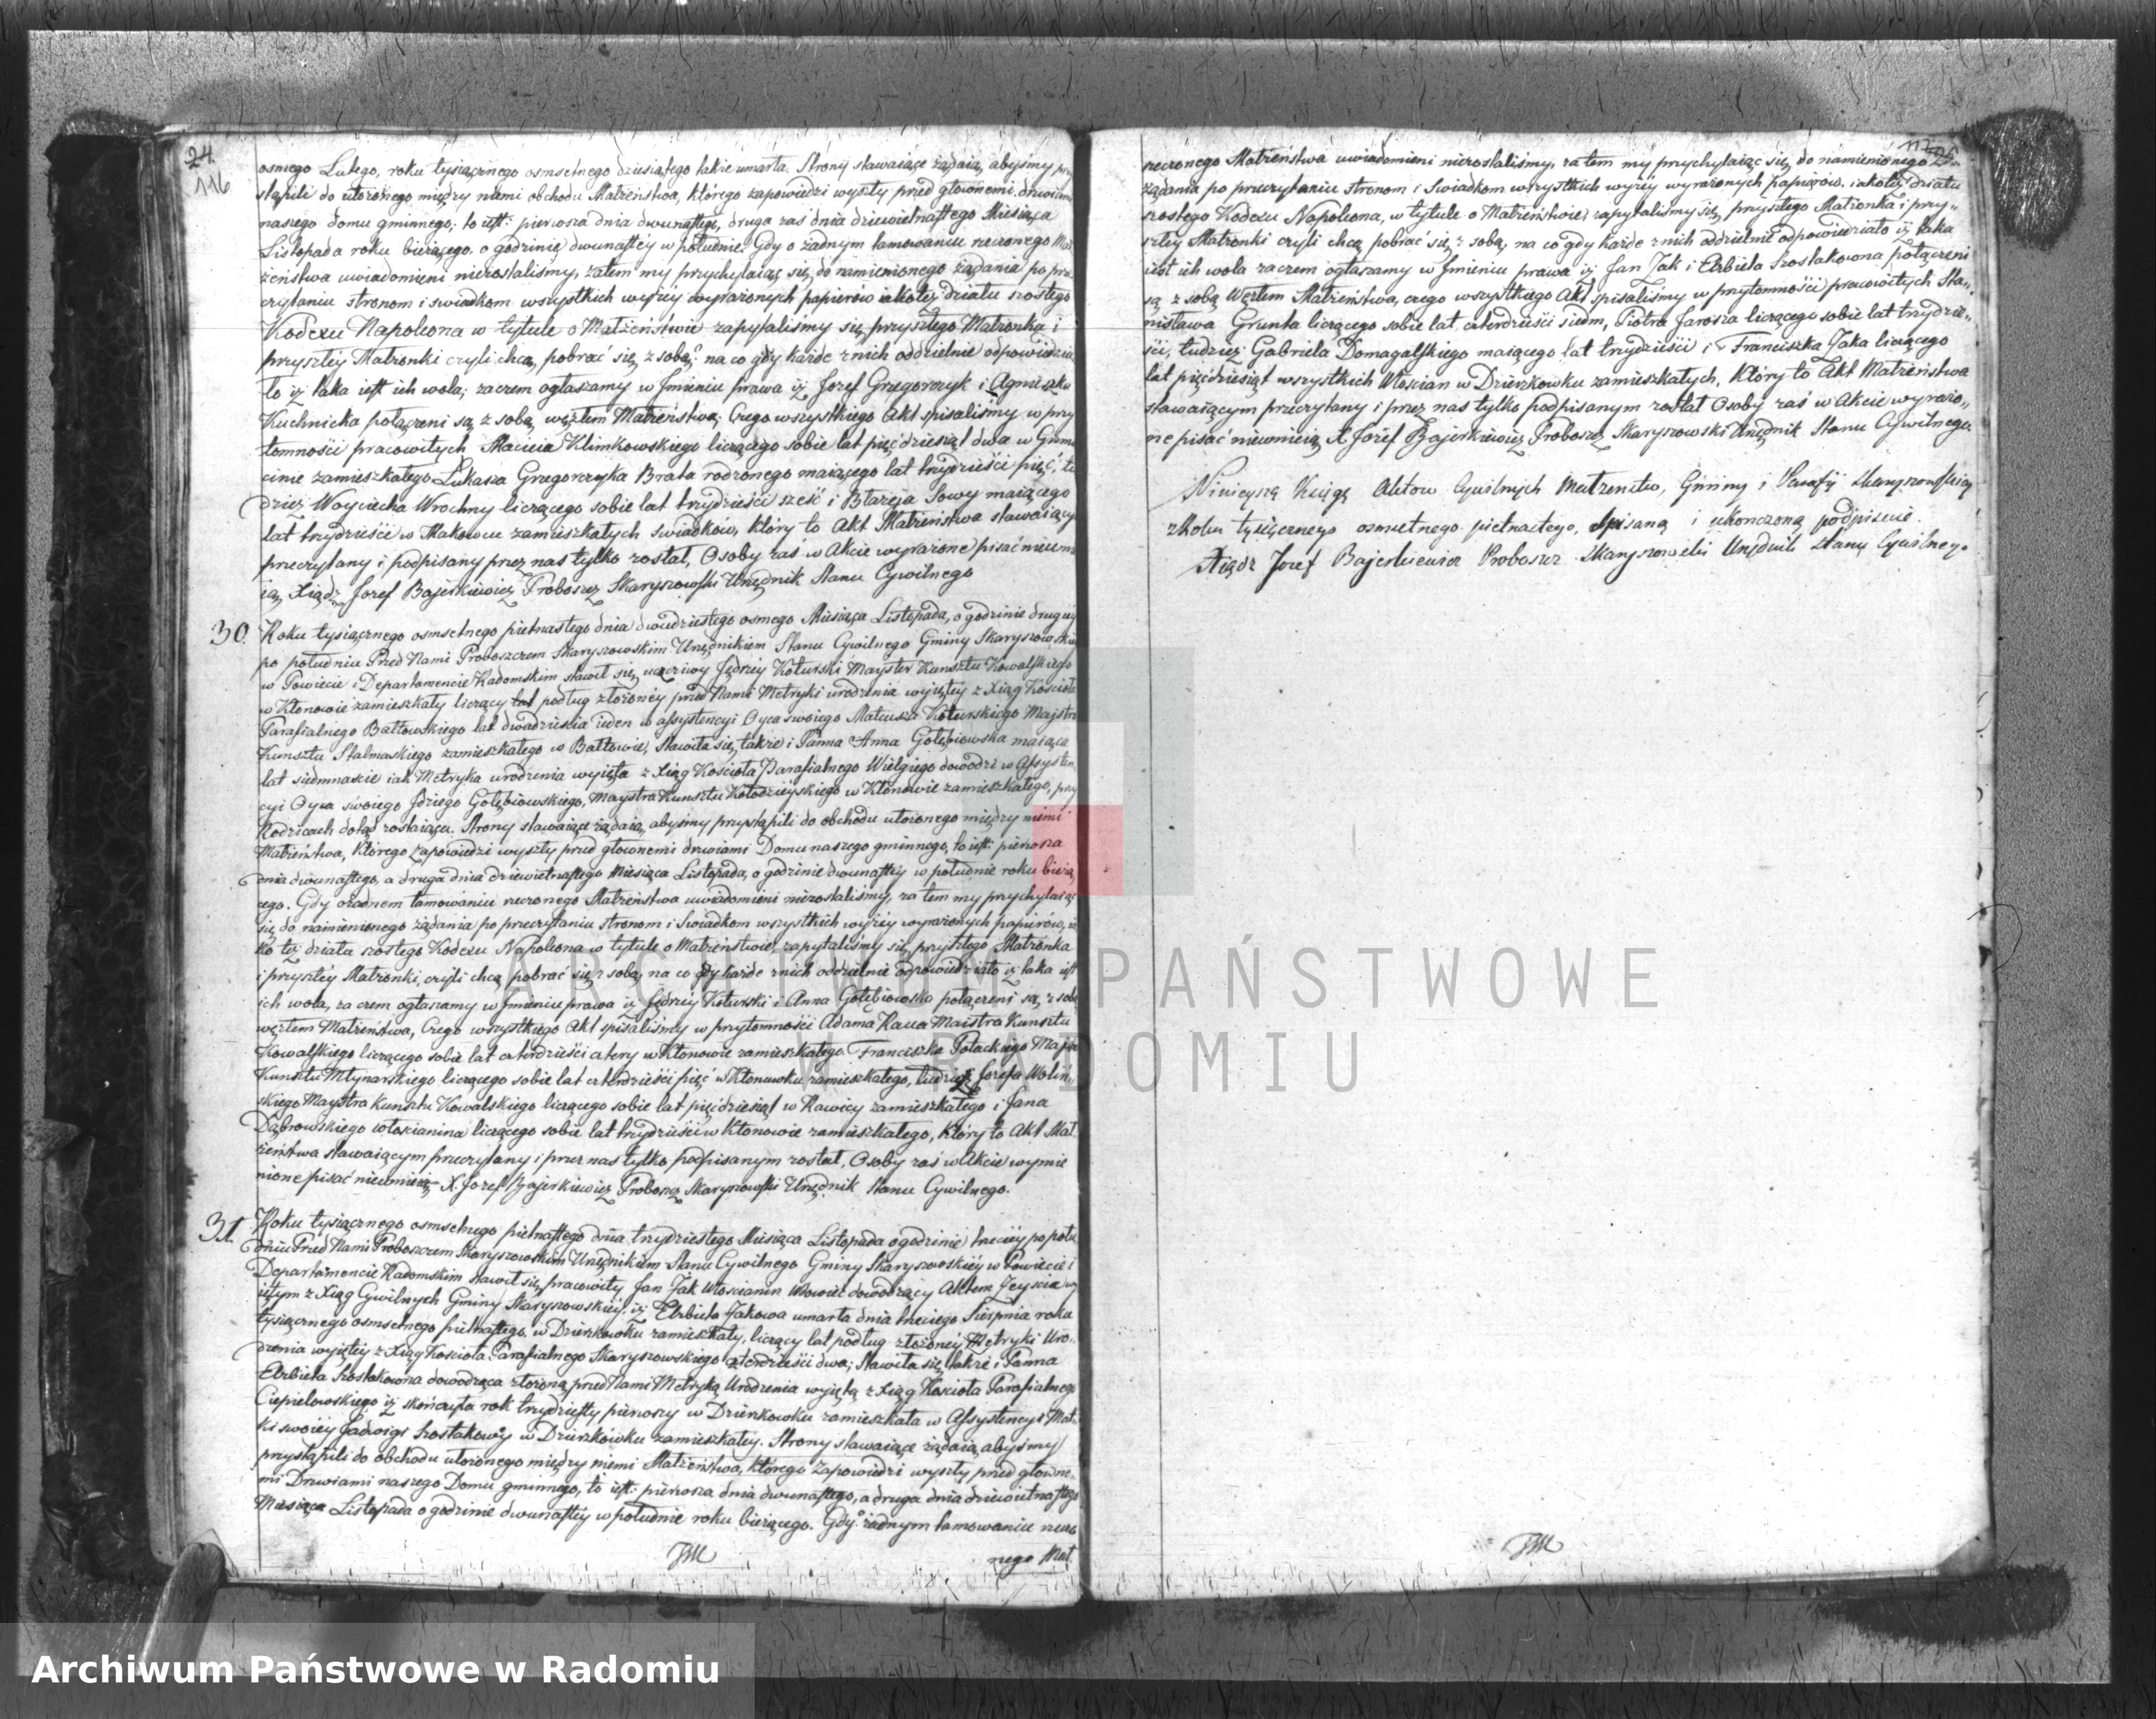 24.
116
osmego Lutego, roku tysiącznego osmsetnego dziesiątego także umarła. Strony stawaiące żądaią, abyśmy przy
stąpili do ułożonego między niemi obchodu Małżeństwa, którego zapowiedzi wyszły przed głownemi drzwiami
naszego domu gminnego, to iest: pierwsza dnia dwunastego, druga zaś dnia dziewietnastego Miesiąca
Listopada roku bieżącego, o godzinie dwunastéy w południe. Gdy o żadnym tamowaniu rzeczonego Mał
żeństwa uwiadomieni niezostaliśmy, zatem my przychylaiąc się do namienionego żądania po prze
czytaniu stronom i swiadkom wszystkich wyżéy wyrażonych papierów iakoteż działu szostego
Kodexu Napoleona w tytule o Małżeństwie zapytaliśmy się przyszłego Małżonka i
przyszłey Małżonki czyli chcą pobrać się z sobą; na co gdy każde z nich oddzielnie odpowiedzia
ło iż taka iest ich wola; zaczem ogłaszamy w Jmieniu prawa iż Jozef Gregorczyk i Agnieszka
Kuchnicka połączeni są z sobą węzłem Małżeństwa; Czego wszystkiego Akt spisaliśmy w przy
tomności pracowitych Macieia Klimkowskiego liczącego sobie lat pięćdziesiąt dwa w
cinie zamieszkałego Łukasza Gregorczyka Brata rodzonego maiącego lat trzydzieści pięć, tu
dzież Woyciecha Wrochny liczącego sobie lat trzydzieści sześć i Błażeia Sowy maiącego
lat trzydzieści w Makowcu zamieszkałych swiadków, który to Akt Małżeństwa stawaiącym
przeczytany i podpisany przez nas tylko został, Osoby zaś w Akcie wyrażone pisać nieumie
ią, Xiądz Jozef Bajerkiewicz Proboszcz Skaryszowski Urzędnik Stanu Cywilnego
30. Roku tysiącznego osmsetnego piętnastego dnia dwudziestego osmego Miesiąca Listopada, o godzinie drugiéy
po południu Przed Nami Proboszczem Skaryszowskim Urzędnikiem Stanu Cywilnego Gminy Skaryszowskiey
w Powiecie i Departamencie Radomskim stawił się uczciwy Jędrzéy Koturski Mayster Kunsztu Kowalskiego
w Kłonowie zamieszkały liczący lat podług złożonéy przed Nami Metryki urodzenia wyjętey z Xiąg Kościoła
Parafialnego Bałtowskiego lat dwadzieścia ieden w assystencyi Oyca swoiego Mateusza Koturskiego Majstra
Kunsztu Stalmaskiego zamieszkałego w Bałtowie, Stawiła się także i Panna Anna Gołębiowska maiąca
lat siedmnaście iak Metryka urodzenia wyjęta z Xiąg Kościoła Parafialnego Wielgiego dowodzi w Assysten
cyi Oyca swoiego Jdziego Gołębiowskiego, Maystra Kunsztu Kołodzieyskiego w Kłonowie zamieszkałego, przy
Rodzicach dotąd zostaiąca. Strony stawaiące żądaią, abyśmy przystąpili do obchodu ułożonego między niemi
Małżeństwa, którego zapowiedzi wyszły przed głownemi drzwiami Domu naszego gminnego, to iest: pierwsza
dnia dwunastego, a druga dnia dziewietnastego Miesiąca Listopada, o godzinie dwunastéy w południe roku bieżą
cego. Gdy o żadnem tamowaniu rzeczonego Małżeństwa uwiadomieni niezostaliśmy, za tem my przychylaiąc
się do namienionego żądania po przeczytaniu stronom i Swiadkom wszystkich wyżéy wyrażonych papierów, ia
ko też działu szostego Kodexu Napoleona w tytule o Małżeństwie, zapytaliśmy się przyszłego Małżonka
i przyszłéy Małżonki, czyli chcą pobrać się z sobą, na co gdy każde z nich oddzielnie odpowiedziało iż taka iest
ich wola, za czem ogłaszamy w Jmieniu prawa iż Jędrzéy Koturski i Anna Gołębiowska połączeni są z sobą
węzłem Małżeństwa, Czego wszystkiego Akt spisaliśmy w przytomności Adama Maistra Kunsztu
Kowalskiego liczącego sobie lat czterdzieści cztery w Kłonowie zamieszkałego, Franciszka Polackiego Majstra
Kunsztu Młynarskiego liczącego sobie lat czterdzieści pięć w Kłonowku zamieszkałego, tudzież Jozefa Wolin„
skiego Maystra kunsztu Kowalskiego liczącego sobie lat pięćdziesiąt w Rawicy zamieszkałego i Jana
Dąbrowskiego włościanina liczącego sobie lat trzydzieści w Kłonowie zamieszkałego, który to Akt Mał
żeństwa stawaiącym przeczytany i przez nas tylko podpisanym został, Osoby zaś w Akcie wymie
nione pisać nieumieią X. Jozef Bajerkiewicz Proboszcz Skaryszowski Urzędnik Stanu Cywilnego.
31. Roku tysiącznego osmsetnego piętnastego dnia trzydziestego Miesiąca Listopada o godzinie trzeciéy po połu
dniu Przed Nami Proboszczem Skaryszowskim Urzędnikiem Stanu Cywilnego Gminy Skaryszowskiéy w Powiecie i
Departamencie Radomskim stawił się pracowity Jan Jak Włoscianin Wdowiec dowodzący Aktem Zeyscia wy
iętym z Xiąg Cywilnych Gminy Skaryszowskiéy iż Elzbieta Jakowa umarła dnia trzeciego Sierpnia roku
tysiącznego osmsetnego piętnastego, w Dzierzkowku zamieszkały, liczący lat podług złożonéy Metryki Uro„
dzenia wyjętéy z Xiąg Kościoła Parafialnego Skaryszowskiego czterdzieści dwa; Stawiła się także i Panna
Elzbieta Szostakowna dowodząca złożoną przed Nami Metryką Urodzenia wyjętą z Xiąg Kościoła Parafialnego
Ciepielowskiego iż skończyła rok trzydziesty pierwszy w Dzierzkowku zamieszkała w Assystencyi Mat„
ki swoiéy Jadwigi Szostakowy w Dzierzkowku zamieszkałey. Strony stawaiące żądaią, abyśmy
przystąpili do obchodu ułożonego między niemi Małżeństwa, którego Zapowiedzi wyszły przed głowne„
mi Drzwiami naszego Domu gminnego, to iest: pierwsza dnia dwunastego, a druga dnia dziewietnastego
Miesiąca Listopada o godzinie dwunastéy w południe roku bieżącego. Gdy o żadnym tamowaniu rzeczo
nego Mał.
117
rzeczonego Małżeństwa uwiadomieni niezostaliśmy, za tem my przychylaiąc się do namienionego
żądania po przeczytaniu stronom i Swiadkom wszystkich wyżéy wyrażonych papierów iakoteż działu
szostego Kodexu Napoleona, w tytule o Małżeństwie; zapytaliśmy się przyszłego Małżonka i przy„
szłey Małżonki czyli chcą pobrać się z sobą, na co gdy każde z nich oddzielnie odpowiedziało iż taka
iest ich wola zaczem ogłaszamy w Jmieniu prawa iż Jan Jak i Elzbieta Szostakowna połączeni
są z sobą Węzłem Małżeństwa, czego wszystkiego Akt spisaliśmy w przytomności pracowitych Sta„
nisława Grunta liczącego sobie lat czterdzieści siedm, Piotra Jarosza liczącego sobie lat trydzie„
ści, tudzież Gabriela Domagalskiego maiącego lat trzydzieści i Franciszka Jaka liczącego
lat pięćdziesiąt wszystkich Włoscian w Dzierzkowku zamieszkałych, Który to Akt Małżeństwa
stawaiącym przeczytany i przez nas tylko podpisanym został Osoby zaś w Akcie wyrażo„
ne pisać nieumieią X Jozef Bajerkiewicz Proboszcz Skaryszowski Urzędnik Stanu Cywilnego
Ninieyszą Xięgę Aktow Cywilnych Małzenstw, Gminy i Parafij Skaryszowskiey
z Roku tysiącznego osmsetnego pietnastego, Spisaną i ukonczoną podpisuie.
Xiądz Jozef Bajerkiewicz Proboszcz Skaryszowski Urzędnik Stanu Cywilnego
ARCHIWUM PAŃSTWOWE
W RADOMIU
Archiwum Państwowe w Radomiu